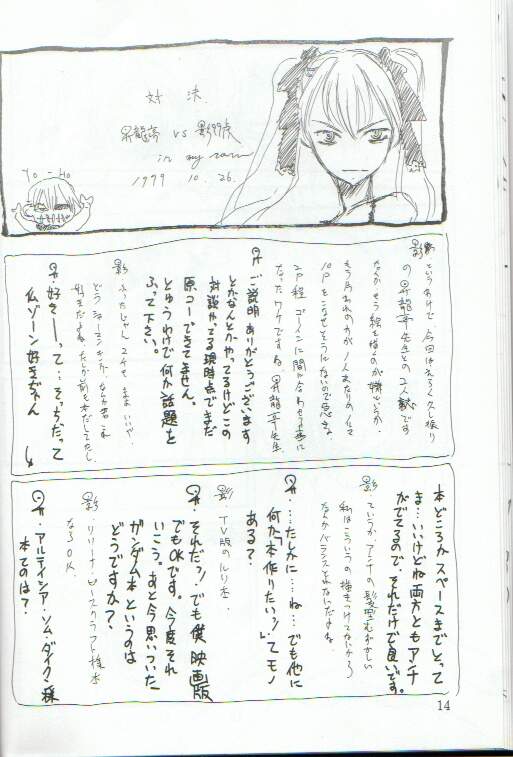 対決
昇龍亭 vs 影99虎
in my room
1999 10. 26.
Yo-Ho
影 というわけで、今回はえらく久し振り
の昇龍亭先生との2人誌です
なんか もう絵を描くのが嫌というか
もう
10Pをこなせそうにないので急きょ
2P程 ゴーインに間に合わせる事に
なったワケです 昇龍亭先生
昇・ご説明ありがとうございます
とかなんとかやってるけどこの
対談やってる現時点でまだ
原コーできてません。
とゆうわけで何か話題を
ふって下さい。
影
どうシャーマンキング なら君これ
好きだよね たしか前も本だしてたし
昇・好きーって…そっちだって
仏ゾーン好きぢゃん
本どころかスペースまでとって
ま…いいけどね両方ともアンナ
がでてるので、それだけで良いです。
影 ていうかアンナの髪型むずかしい
私はこういうの描きつけてないから
なんかバランスとれないんだよね
昇・…たしかに…ね…でも他に
何か「本作りたいっ!」てモノ
ある?
影・TV版のルリ本。
昇・それだっ!でも僕映画版
でもOKです。今度それ
いこう。あと今思いついた
ガンダム本というのは
どうですか?
影・リリーナ・ピースクラフト様本
ならOK。
昇・アルテイシア・ソム・ダイクン様
本てのは?
14